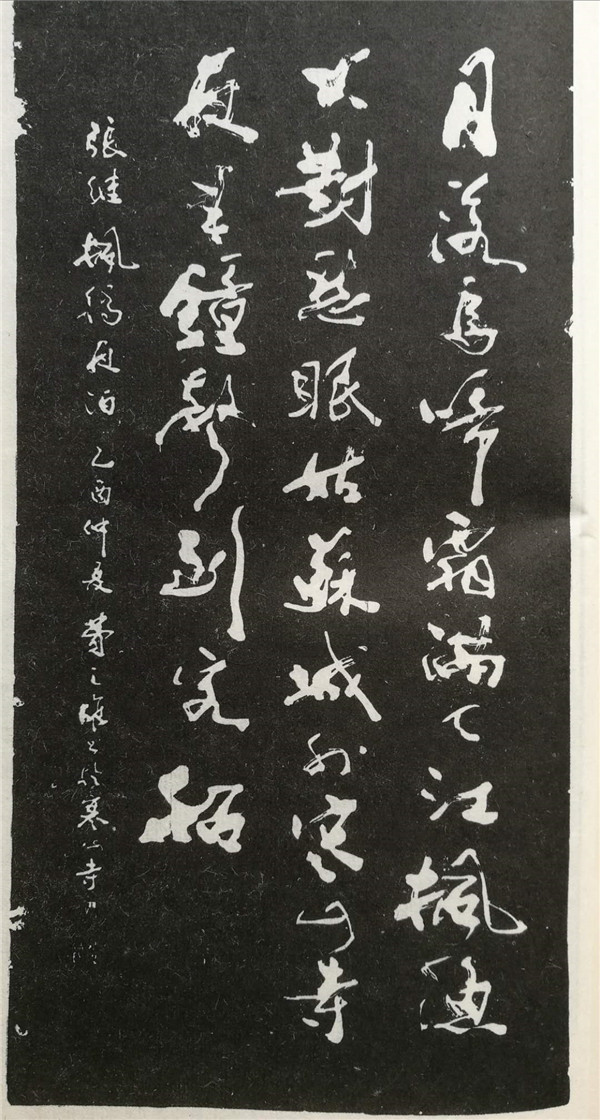 月落烏啼霜滿天江楓漁
火對愁眠姑蘇城外寒山寺
夜半鐘聲到客船
張继楓橋夜泊 乙酉仲夏 費之雄书於寒山寺